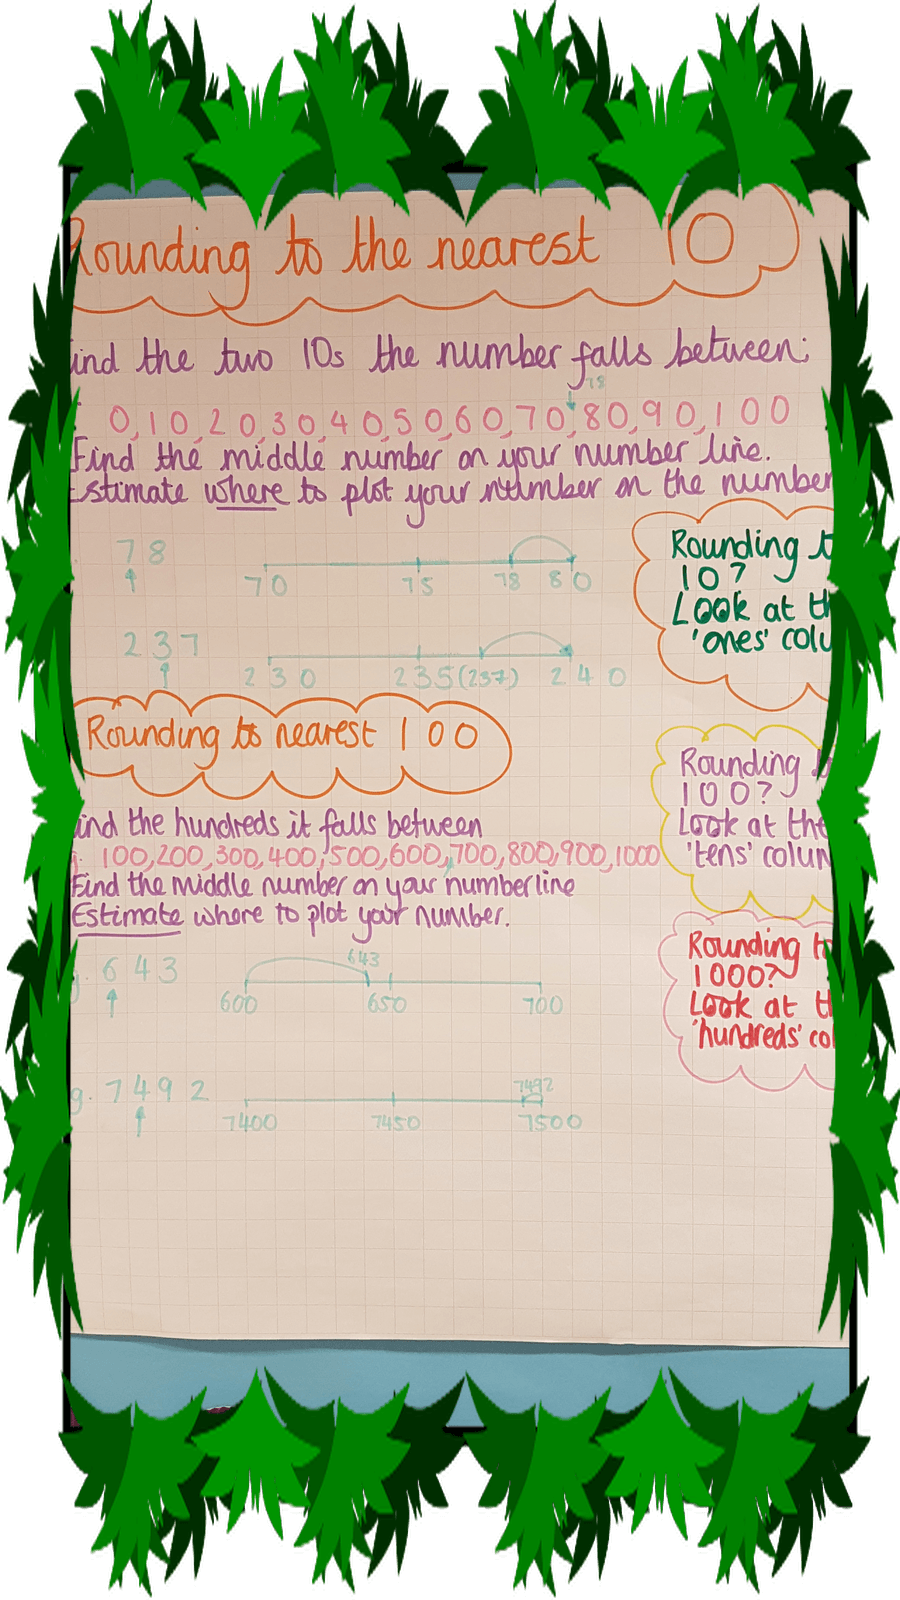 Rounding to the nearest 10
ind the two 10s the number falls between:
78
0,10,20,30,40,50,60,70,80,90,100
Find the middle number on your number line.
Estimate where to plot your number on the number
78
70 75 78 80
237
230 235 (237) 240
Rounding t
10?
Look at th
'ones' colu
Rounding to nearest 100
ind the hundreds it falls between
100,200,300,400,500,600,700,800,900,1000
Find the middle number on your numberline
Estimate where to plot your number.
Rounding
100?
Look at the
'tens' colum
g. 643
643
600 650 700
Rounding t
1000?
Look at th
'hundreds' col
g. 7492
7492
7400 7450 7500